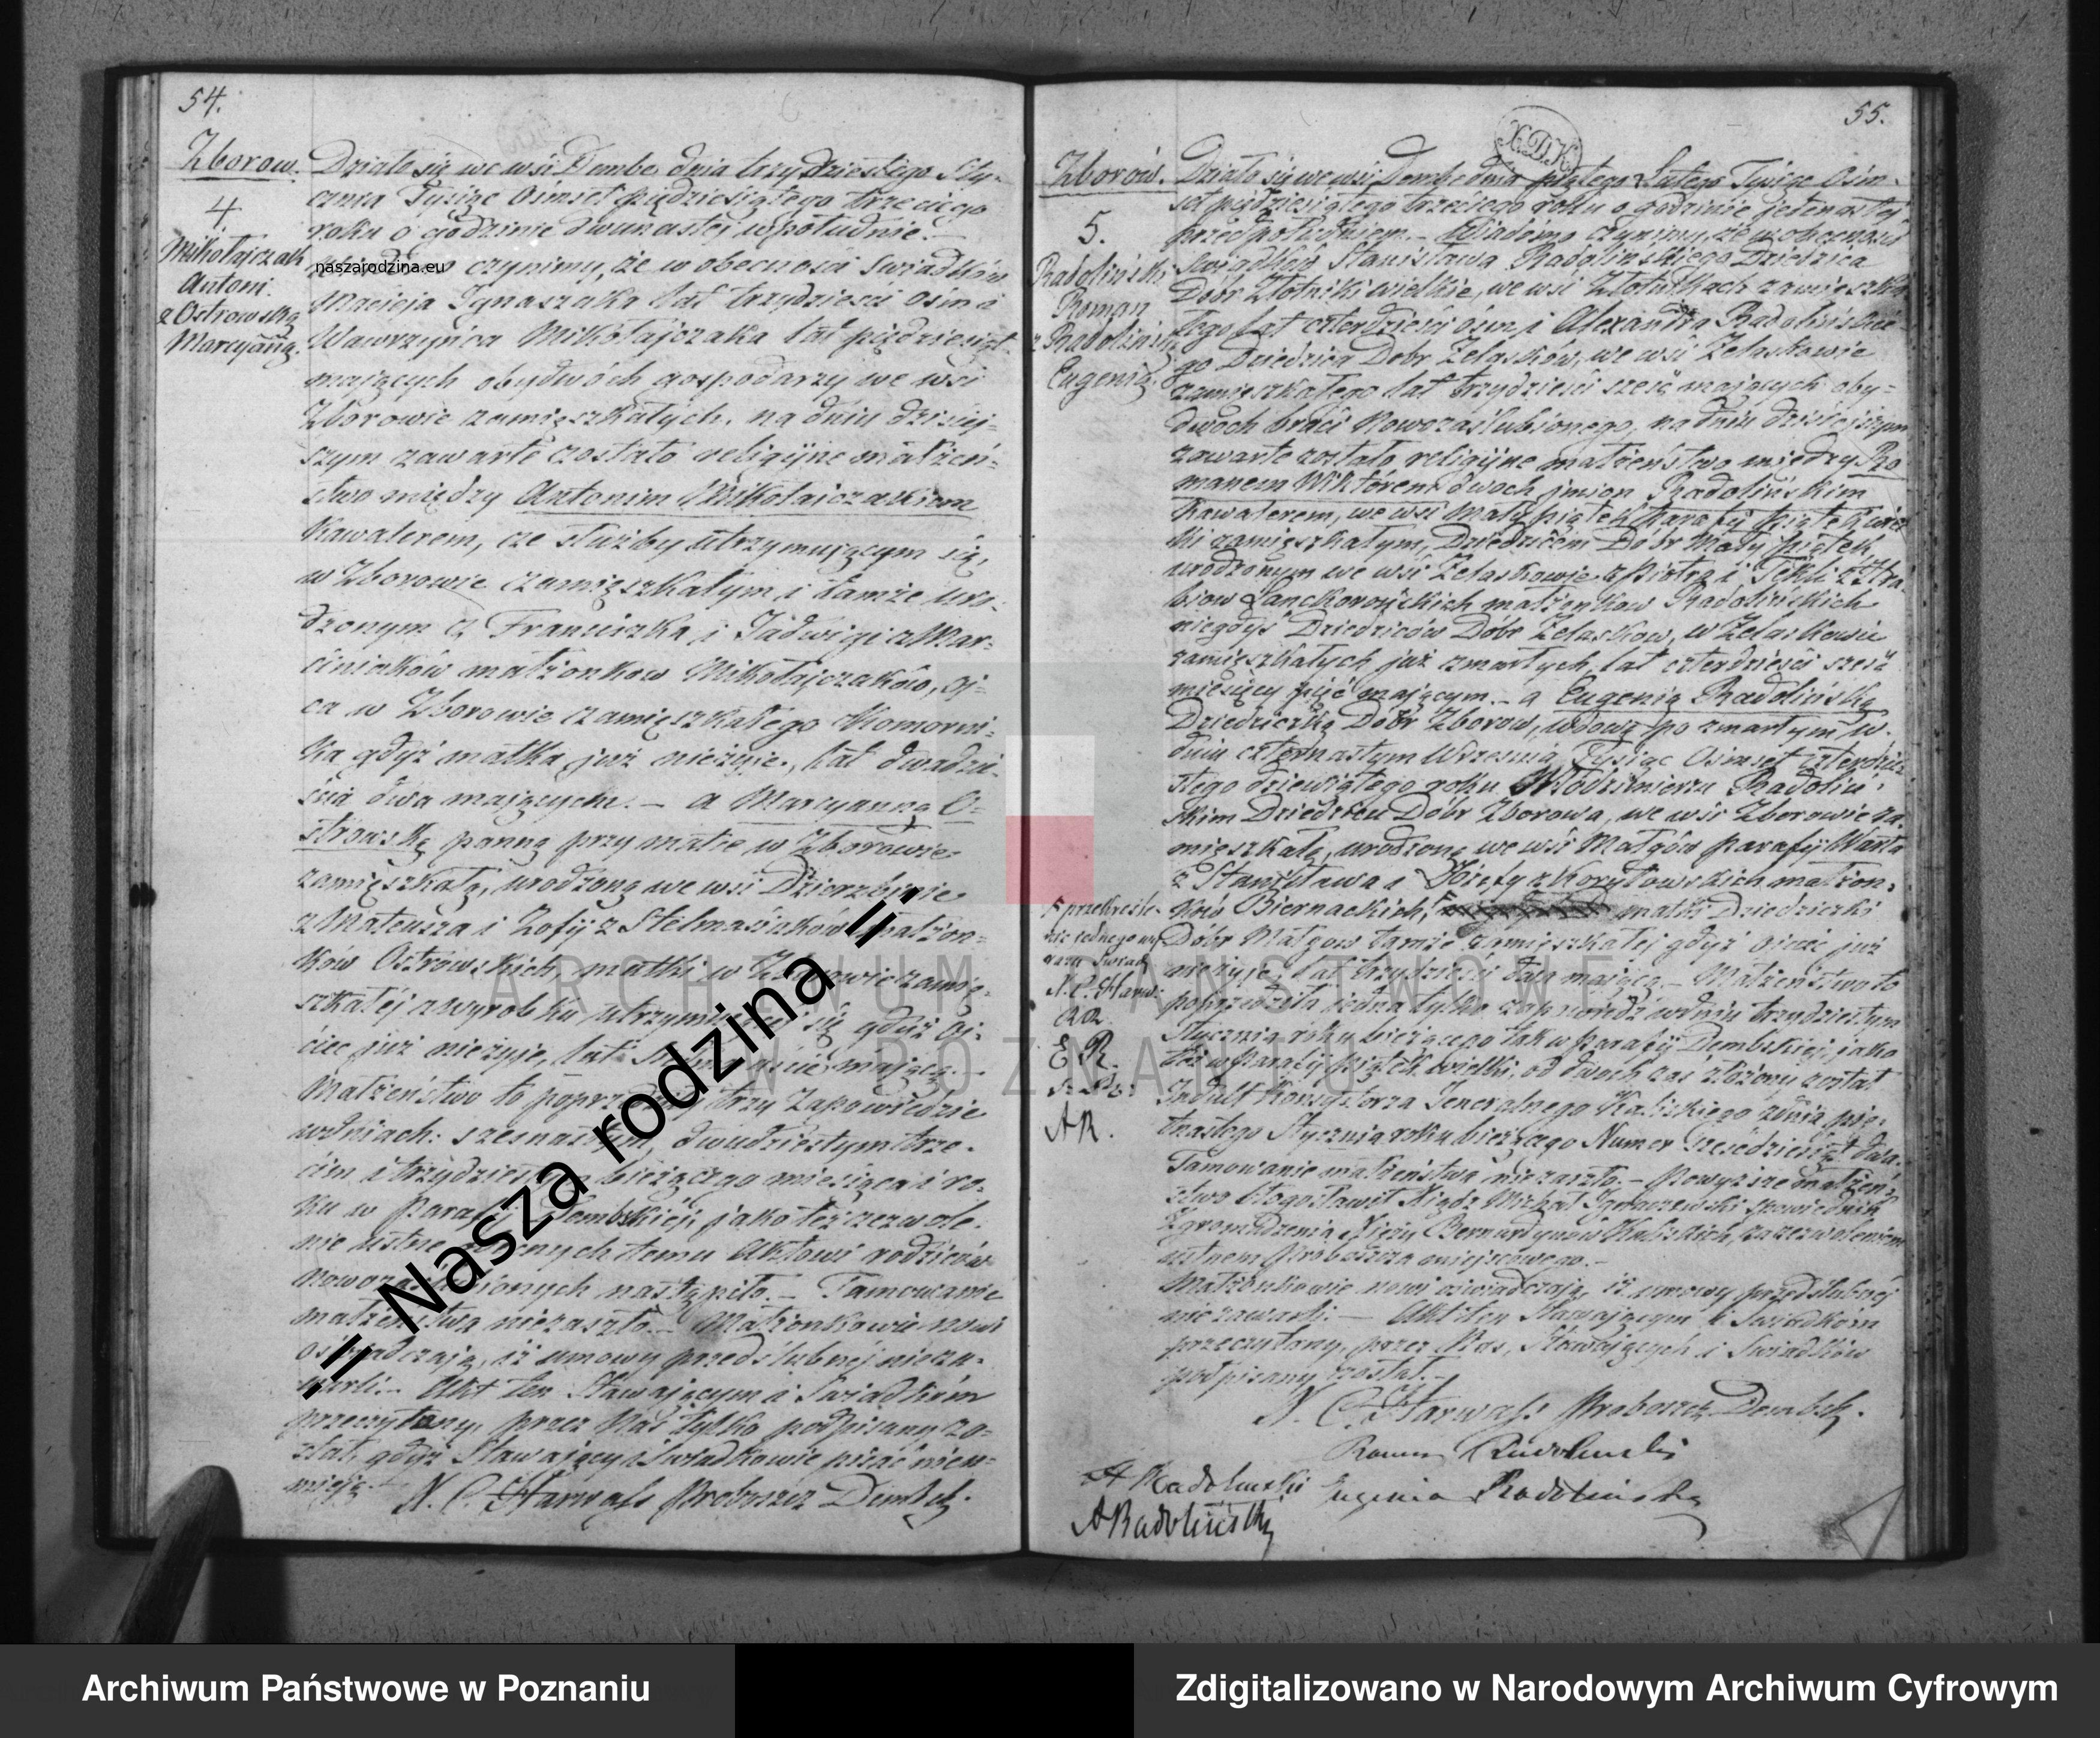 54.
Zborow.
4
Mikołajczak
Antoni
z Ostrowską
Marcyanną.
Działo się we wsi Dembe dnia trzydziestego Sty-
cznia Tysiąc Ośmset pięćdziesiątego trzeciego
roku o godzinie dwunastej w południe.—
naszarodzina.eu
czynimy, że w obecności Swiadków
Macieja Ignaszaka lat trzydzieści ośm i
Wawrzyńca Mikołajczaka lat pięćdziesiąt
mających obydwóch gospodarzy we wsi
Zborowie zamieszkałych, na dniu dzisiej-
szym zawarte zostało religijne małżeń-
stwo między Antonim Mikołajczakiem
Kawalerem, ze służby utrzymującym się,
w Zborowie zamięszkałym i tamże uro-
dzonym z Franciszka i Jadwigi z Mar-
ciniaków małżonkow Mikołajczaków, oj-
ca w Zborowie zamięszkałego Komorni-
ka gdyż matka już nieżyje, lat dwadzie-
ścia dwa mającym.— a Marcyanną O-
strowską panną przy matce w Zborowie
zamięszkałą, urodzoną we wsi Dzierzbinie
z Mateusza i Zofij z Stelmasiaków małżon-
ków Ostrowskich, matki w Zborowie zamię-
szkałéj z wyrobku utrzymującej się gdyż Oj-
ciec już nieżyje, lat mającą.—
Małżeństwo to poprzedziły trzy Zapowiedzie
w dniach: szesnastym, dwudziestym trze-
cim i trzydziestym bieżącego miesiąca i ro-
ku w Parafij Dembskiéj, jako też zezwole-
nie ustne obecnych temu Aktowi rodziców
Nowozaślubionych nastąpiło.— Tamowanie
małżeństwa niezaszło.— Małżonkowie nowi
oświadczają, iż umowy przedślubnej nieza-
warli.— Akt ten Stawającym i Swiadkóm
przeczytany, przez Nas tylko podpisany zo-
stał, gdyż Stawający i Swiadkowie pisać nieu-
mieją.—
N. C. Harwass Proboszcz Dembsk.
55.
X.D.K.
Zborów.
5.
Radoliński
Roman
z Radolińską
Eugenią.
Działo się we wsi Dembe dnia piątego Lutego Tysiąc Ośm-
set pięćdziesiątego trzeciego roku o godzinie jedenastej
przed południem.— Wiadomo czynimy, że w obecności
Swiadków Stanisława Radolińskiego Dziedzica
Dóbr Złotniki wielkie, we wsi Złotnikach zamięszka-
łego lat czterdzieści óśm i Alexandra Radolińskie-
go Dziedzica Dobr Żelasków, we wsi Żelaskowie
zamięszkałego lat trzydzieści sześć mających oby-
dwóch braci Nowozaślubionego, na dniu dzisiejszym
zawarte zostało religijne małżeństwo między Ro-
manem Wiktórem dwoch imion Radolińskim
Kawalerem, we wsi Mały piątek Parafij Piątek wiel-
ki zamięszkałym, Dziedzicem Dóbr Mały piątek,
urodzonym we wsi Żelaskowie z Piotra i Tekli z Hra-
biow Lanckorońskich małżonkow Radolińskich
niegdyś Dziedziców Dóbr Żelaskow, w Żelaskowie
zamięszkałych już zmarłych, lat czterdzieści sześć
miesięcy pięć mającym.— a Eugenią Radolińską
Dziedziczką Dóbr Zborow, wdową po zmarłym w
dniu czternastym Września Tysiąc Ośmset czterdzie-
stego dziewiątego roku Włodzimierzu Radoliń-
skim Dziedzicu Dóbr Zborowa, we wsi Zborowie za-
mięszkałą, urodzoną we wsi Małgów parafij Warta
z Stanisława i Józefy z Korytowskich małżon-
ków Biernackich, matki Dziedziczki
Dóbr Małgow tamże zamięszkałej gdyż ojciec już
nieżyje, lat trzydzieści dwa mającą.— Małżeństwo to
poprzedziła jedna tylko zapowiedź w dniu trzydziestym
Stycznia roku bieżącego tak w Parafij Dembskiéj, jako
też w Parafij Piątek wielki, od dwóch zaś złożony został
Indult Konsystorza Jeneralnego Kaliskiego z dnia pię-
tnastego Stycznia roku bieżącego Numer sześćdziesiąt dwa.
Tamowanie małżeństwa niezaszło.— Powyższe małżeń-
stwo błogosławił Xiądz Michał Zgromadzenia Xięży Bernardynów Kaliskich, za zezwoleniem
ustnem Proboszcza miejscowego.—
Małżonkowie nowi oświadczają, iż umowy przedślubnej
niezawarli.— Akt ten Stawającym i Swiadkóm
przeczytany, przez Nas, Stawających i Swiadków
podpisany został.—
przekreśle-
nie jednego wy-
razu
N. C. Harw:
E R.
A R.
N. C. Harwass Proboszcz Dembsk.
Roman Radolinski
Eugenia Radolinska
Radolinski
A Radoliński
= Nasza rodzina =
ARCHIWUM PAŃSTWOWE
W POZNANIU
Archiwum Państwowe w Poznaniu
Zdigitalizowano w Narodowym Archiwum Cyfrowym